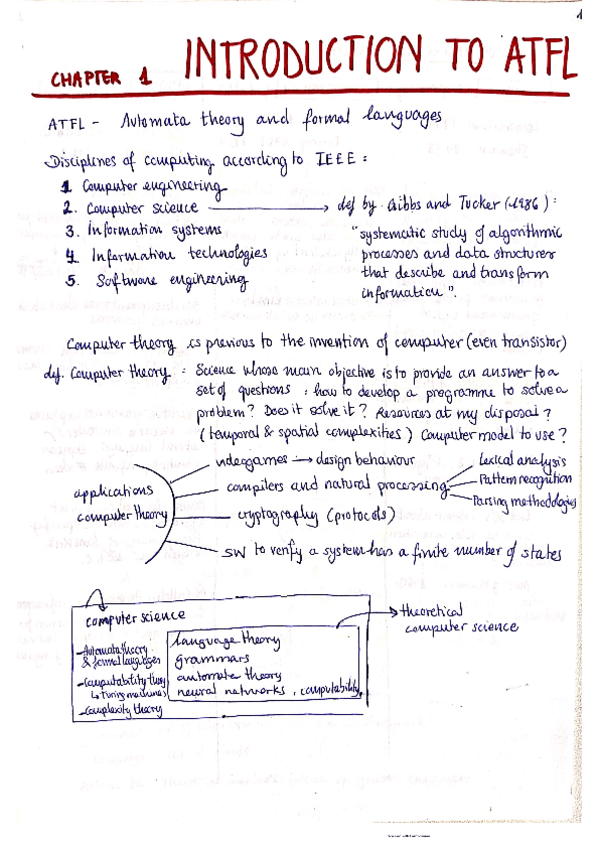 1
CHAPTER 1 INTRODUCTION TO ATFL
ATFL - Automata theory and formal languages
Disciplines of computing according to IEEE :
1 Computer engineering
2. Computer science → def by Gibbs and Tucker (1986) :
3. Information systems
4. Information technologies
5. Software engineering
"systematic study of algorithmic
processes and data structures
that describe and transform
information".
Computer theory is previous to the invention of computer (even transistor)
def. Computer theory : Science whose main objective is to provide an answer to a
set of questions : how to develop a programme to solve a
problem? Does it solve it? Resources at my disposal?
(temporal & spatial complexities) Computer model to use?
applications
computer theory
videogames → design behaviour
compilers and natural processing
Lexical analysis
Pattern recognition
Parsing methodologies
cryptography (protocols)
SW to verify a system has a finite number of states
computer science
-Automata theory
& formal languages
-Computability theory
↳ Turing machines
-Complexity theory
language theory
grammars
automate theory
neural networks, computability
→ theoretical
computer science